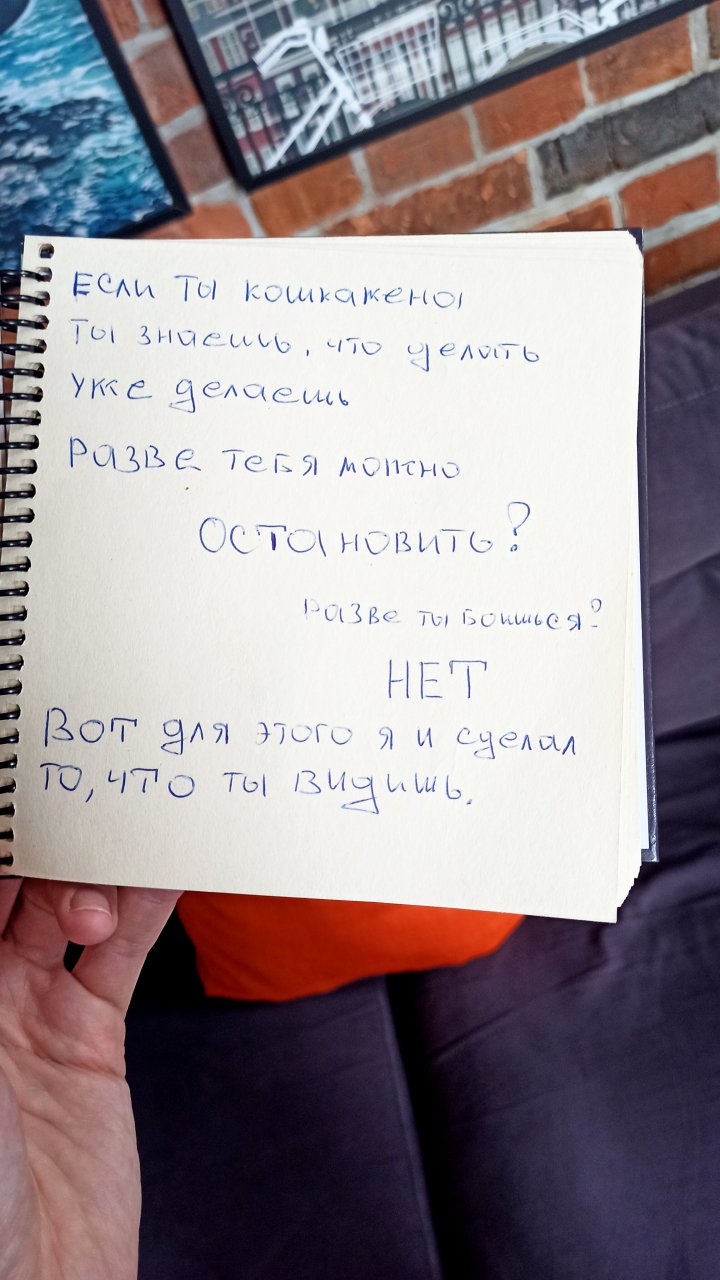 Если ты кошкажена
ты знаешь, что делать
уже делаешь
Разве тебя можно
остановить?
Разве ты боишься?
НЕТ
Вот для этого я и сделал
то, что ты видишь.